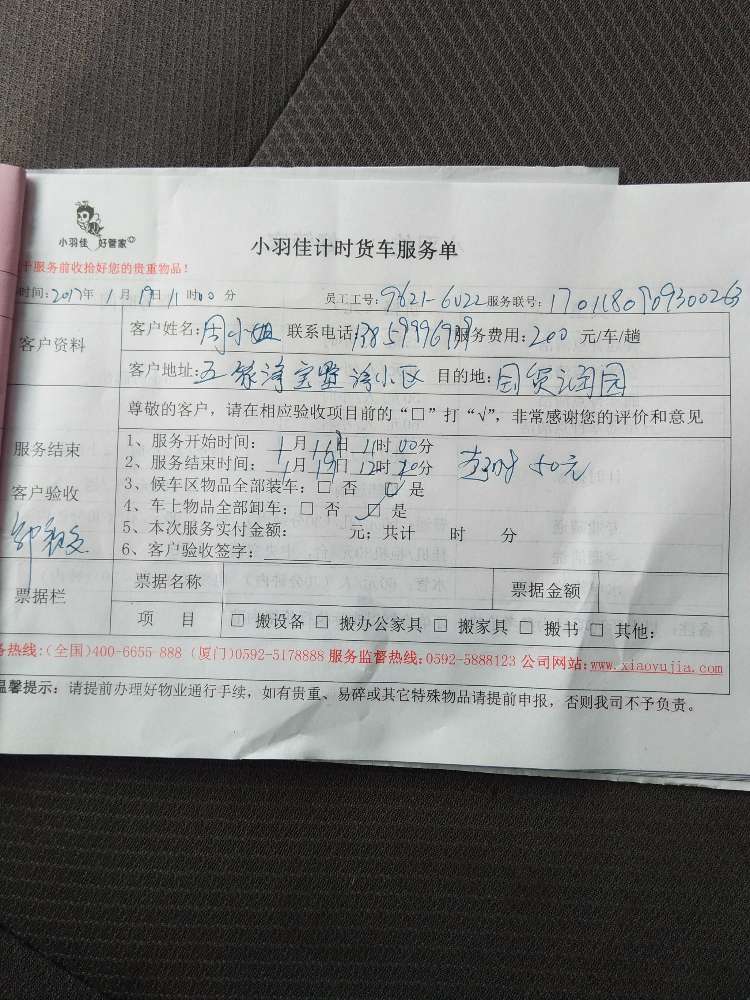 小羽佳 好管家
小羽佳计时货车服务单
于服务前收拾好您的贵重物品!
时间:2017年 1 月 19日 11 时00 分 员工工号:9621-6022 服务联号:
客户资料
客户姓名:周小姐 联系电话 服务费用:200 元/车/趟
客户地址:五缘 小区 目的地:国贸润园
尊敬的客户,请在相应验收项目前的“□”打“√”,非常感谢您的评价和意见
服务结束
客户验收
1、服务开始时间: 1 月 日 11时 00分
2、服务结束时间: 1月 19日 12时 分 超时 50元
3、候车区物品全部装车:□ 否 ☑ 是
4、车上物品全部卸车:□ 否 ☑ 是
5、本次服务实付金额: 元;共计 时 分
6、客户验收签字:
票据栏
票据名称 票据金额
项 目 □ 搬设备 □ 搬办公家具 □ 搬家具 □ 搬书 □ 其他:
务热线:(全国)400-6655-888 (厦门)0592-5178888 服务监督热线:0592-5888123 公司网站:www.xiaoyujia.com
温馨提示:请提前办理好物业通行手续,如有贵重、易碎或其它特殊物品请提前申报,否则我司不予负责。